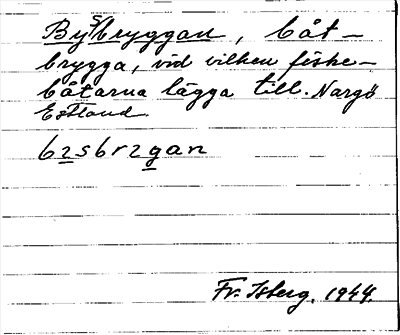 Bysbryggan, båt-
brygga, vid vilken fiske-
båtarna lägga till. Nargö
Estland
bzsbrzgan
Fr. Isberg. 1944.